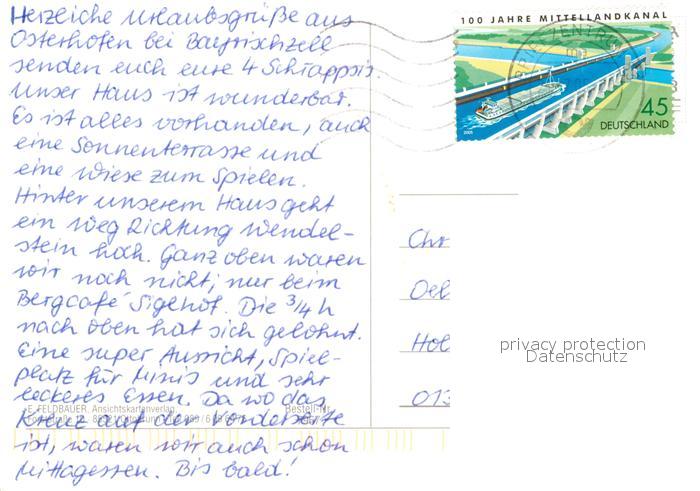 Herzliche Urlaubsgrüße aus
Osterhofen bei Bayrischzell
senden euch eure 4 Schrappsis.
Unser Haus ist wunderbar.
Es ist alles vorhanden, auch
eine Sonnenterrasse und
eine Wiese zum Spielen.
Hinter unserem Haus geht
ein Weg Richtung Wendel-
stein hoch. Ganz oben waren
wir noch nicht, nur beim
Bergcafé Siglhof. Die 3/4 h
nach oben hat sich gelohnt.
Eine super Aussicht, Spiel-
platz für Minis und sehr
leckeres Essen. Da wo das
Kreuz auf der Vorderseite
ist, waren wir auch schon
Mittagessen. Bis bald!
E. FELDBAUER, Ansichtskartenverlag,
Bestell-Nr.
100 JAHRE MITTELLANDKANAL
45
DEUTSCHLAND
2005
BRIEFZENTRUM
Chr
Oel
Hol
013
privacy protection
Datenschutz